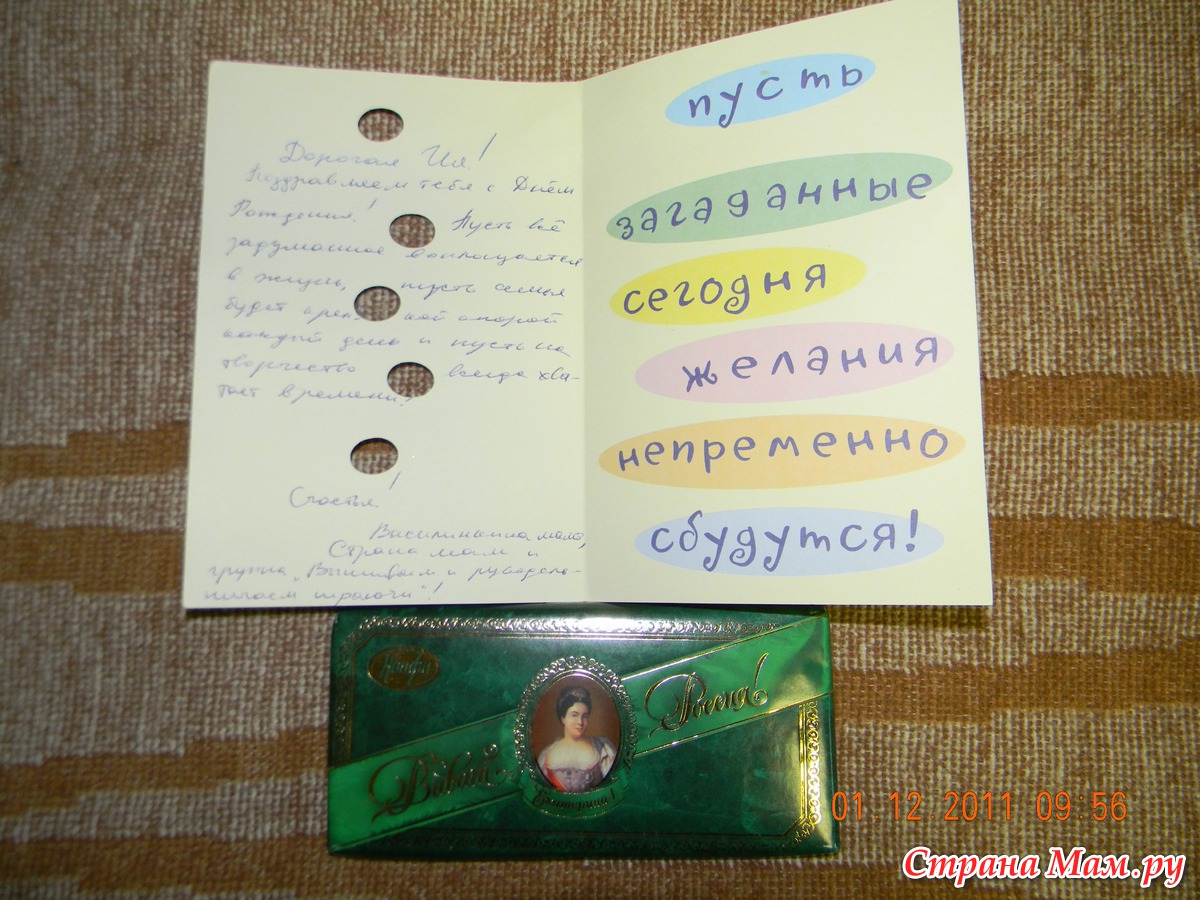 Дорогая Ия!
Поздравляем тебя с Днём
Рождения! Пусть всё
задуманное воплощается
в жизнь, пусть семья
будет креп- кой опорой
каждый день и пусть на
творчество всегда хва-
тает времени!
Счастья!
мама,
Страна мам и
группа „Вышиваем и рукодель-
ничаем
пусть
загаданные
сегодня
желания
непременно
сбудутся!
Конфи
Виват, Россия!
Екатерина I
01.12.2011 09:56
Страна Мам.ру